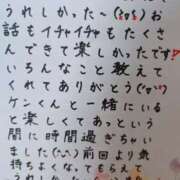 うれしかった〜(°▽°)お
話もイチャイチャもたくさ
んできて楽しかったです!
いろんなこと教えて
くれてありがとう(^_^)
ケンくんと一緒にいる
と楽しくてあっという
間に時間過ぎちゃい
ました(^_^)前回より気
持ちよくなってもらえて
うれしかった